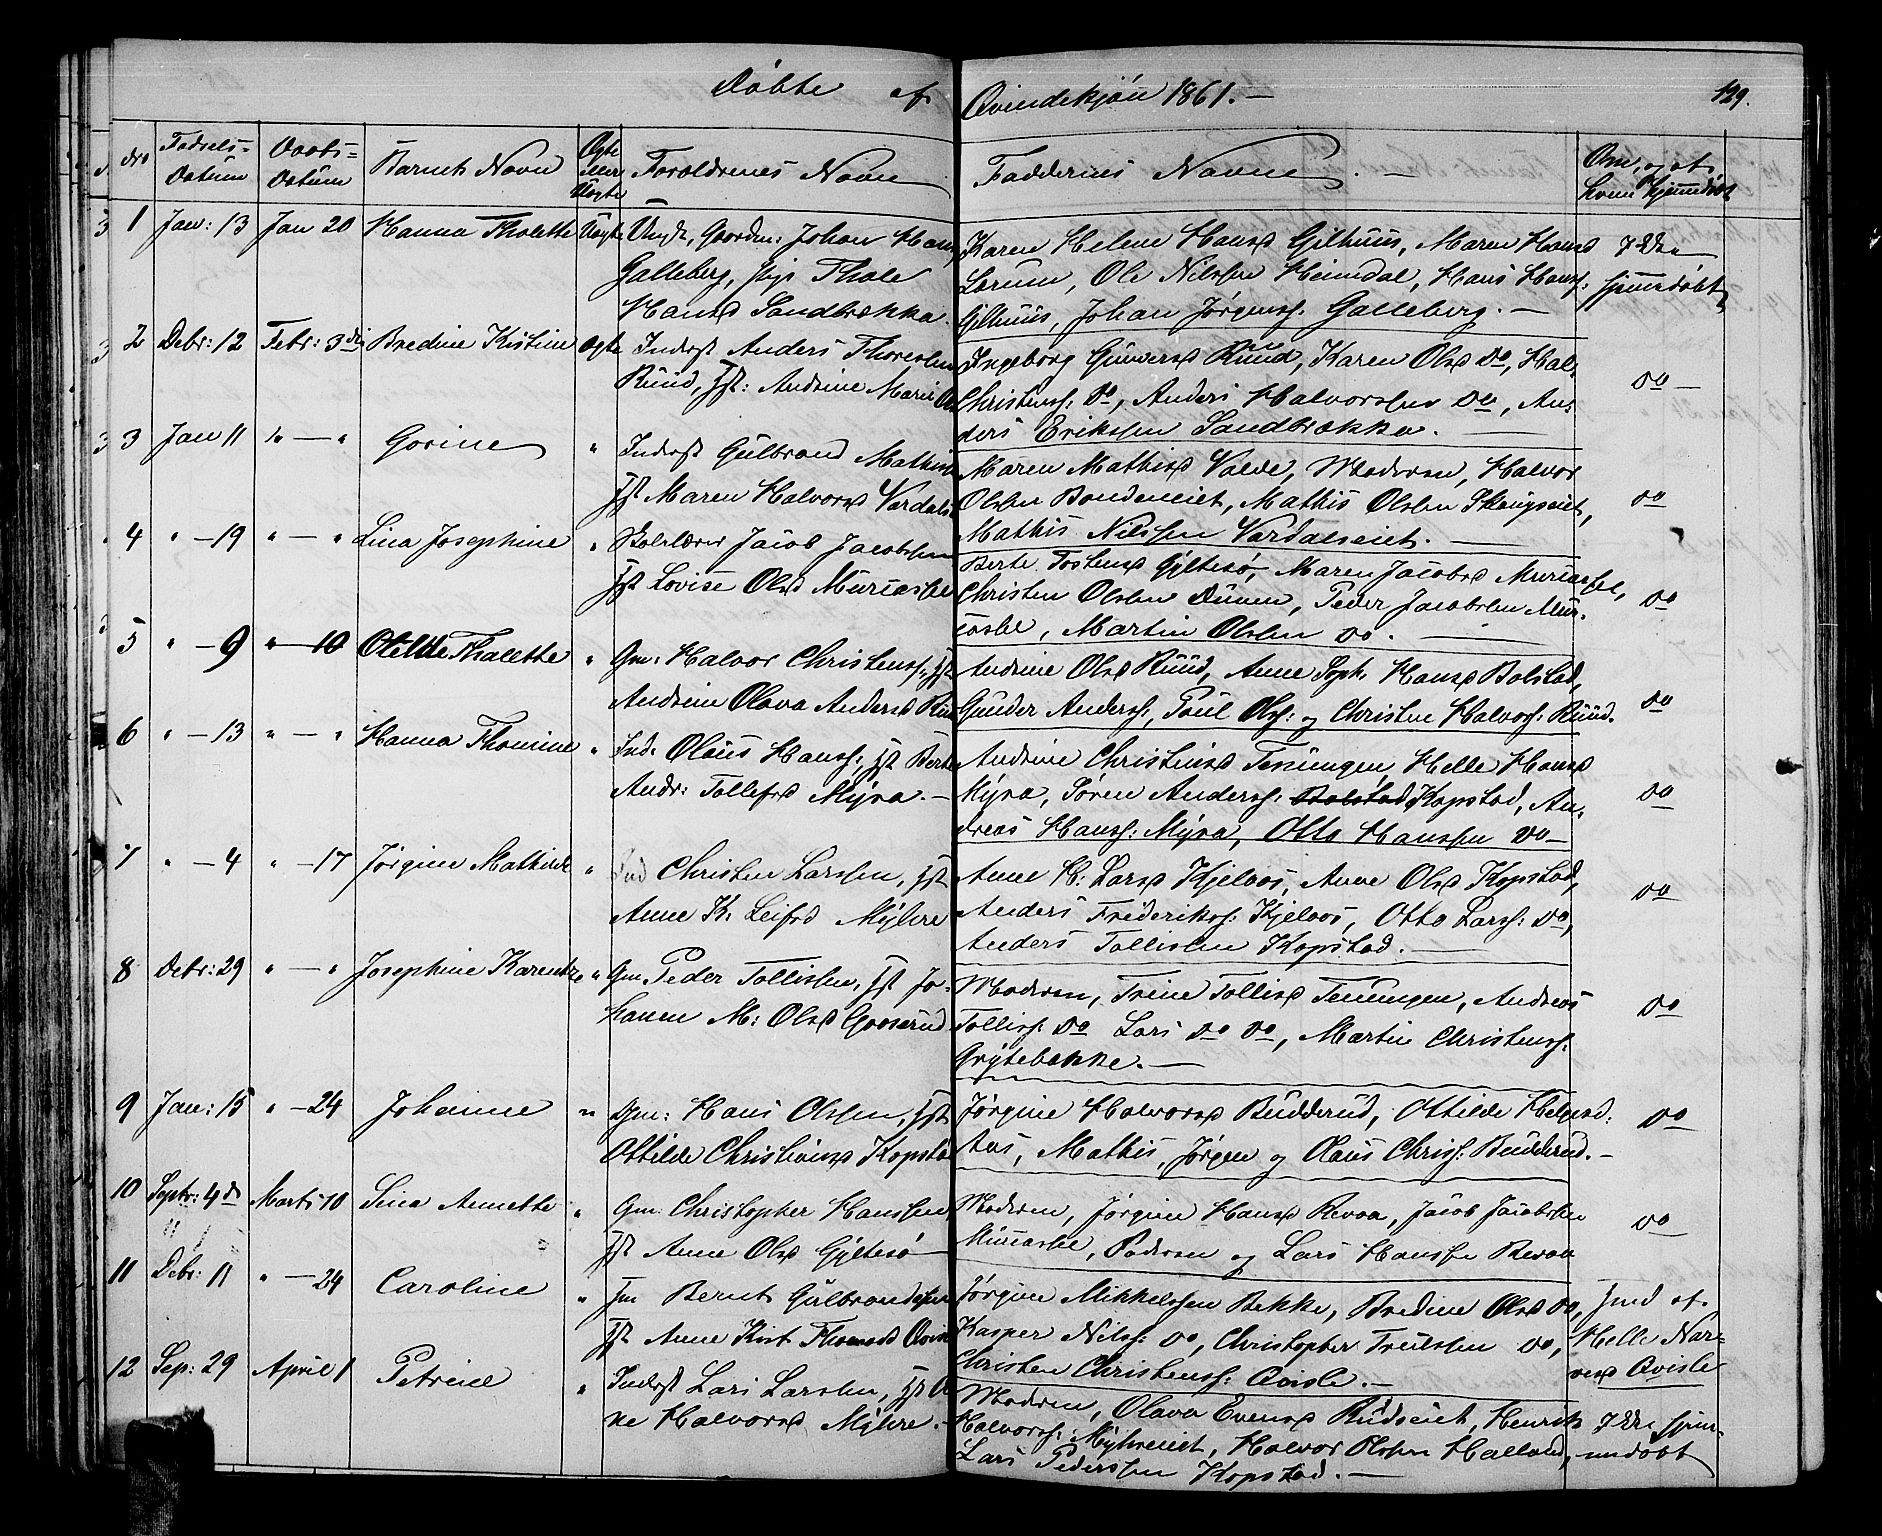 Døbte af Qvindekjøn 1861.— 129.
Nro Fødsels= Datum Daabs= Datum Barnets Navn Ægte eller Uægte Forældrenes Navne Faddernes Navne. — Om, og af hvem hjemmedøbt
1 Jan: 13 Jan 20 Hanna Thalette Uægte Ungk, Gaardm: Johan Hans
Galleberg, pige Thale
Hansd Sandbrække.
Karen Helene Hansd Gilhuus, Maren Hansd
Lerum, Ole Nilssen Heimdal, Hans Hanss:
Gilhuus, Johan Jørgenss. Galleberg. —
Ikke
hjemdøbt
2 Debr: 12 Febr: 3die Bredine Kistine ægte Inderst Anders Thoresen
Ruud, Hst: Andrine Marie
Ingeborg Gunersd Ruud, Karen Olsd Do, Hal-
Christenss: Do, Anders Halvorssen Do, An-
ders Erikssen Sandbrække. —
Do —
3 Jan 11 " — " Gorine " Inderst Gulbrand Mathis
Hst Maren Halvorsd Vardals
Maren Mathisd Valde, Moderen, Halvor
Olsen Bondeneiet, Mathis Olsen Skengseiet,
Mathis Nilssen Vardalseiet. —
Do
4 " — 19 " — " Lina Josephine " Skolelærer Jacob Jacobssen
Hst Lovise Olsd Murcasbe
Berte Tostensd Gjltesø, Maren Jacobsd Murcasbe,
Christen Olsen Duuen, Peder Jacobsen Mur-
casbe, Martin Olsen Do. —
Do
5 " — 9 " — 10 Otelde Thalette " Gm: Halvor Christenss: Hst
Andrine Olava Andersd Ruu
Andrine Olsd Ruud, Anne Soph. Hansd Bolstad,
Gunder Anderss:, Poul Olss: og Christen Halvorss: Ruud.
Do
6 " — 13 " — " Hanna Thomine " Ind. Olaus Hanss:, Hst Berte
Andr: Tollefsd Myra. —
Andrine Christensd Teningen, Helle Hansd
Myra, Søren Anderss: Bolstad Kopstad, An-
dreas Hanss: Myra, Otto Hanssen Do —
Do
7 " — 4 " — 17 Jørgine Mathilde " Ind Christen Larssen, Hst
Anne K. Leifsd Myhre
Anne K: Larsd Kjelaas, Anne Olsd Kopstad,
Anders Frederikss: Kjelaas, Otto Larss: Do,
Anders Tollissen Kopstad. —
Do
8 Debr: 29 " — " Josephine Karentze " Gm. Peder Tollissen, Hst Jo-
hanne M: Olsd Gaaserud
Moderen, Trine Tollisd Teningen, Andreas
Tolliss: Do Lars Do Do, Martin Christenss:
Grytebække. —
Do
9 Jan: 15 " — 24 Johanne " Gm: Hans Olssen, Hst
Ottilde Christiansd Kopsta
Jørgine Halvorsd Budderud, Ottilde Helgesd:
Aas, Mathis, Jørgen og Olaus Chriss: Budderud. —
Do
10 Septr: 4de Marts 10 Lina Annette " Gm: Christopher Hanssen
Hst Anne Olsd Gjltesø
Moderen, Jørgine Hansd Revaa, Jacob Jacobsen
Murcasbe, Faderen og Lars Hanssen Revaa
Do
11 Debr: 11 " — 24 Caroline " Gm Bernt Gulbrandssen
Hst Anne Kirst Thomesd Qvisle
Jørgine Mikkelssen Bekke, Bredine Olsd Do,
Kasper Nilss: Do, Christopher Truelssen Do,
Christen Christenss: Qvisle. —
Hmd af
Helle Nar-
vesd Qvisle
12 Sep: 29 April 1 Petrine " Inderst Lars Larsen, Hst
ne Halvorsd Myhre. —
Moderen, Olava Evensd Rudseiet, Henrik
Halvorss: Myhreeiet, Halvor Olssen Halland,
Lars Pederssen Kopstad. —
Ikke hjem-
medøbt